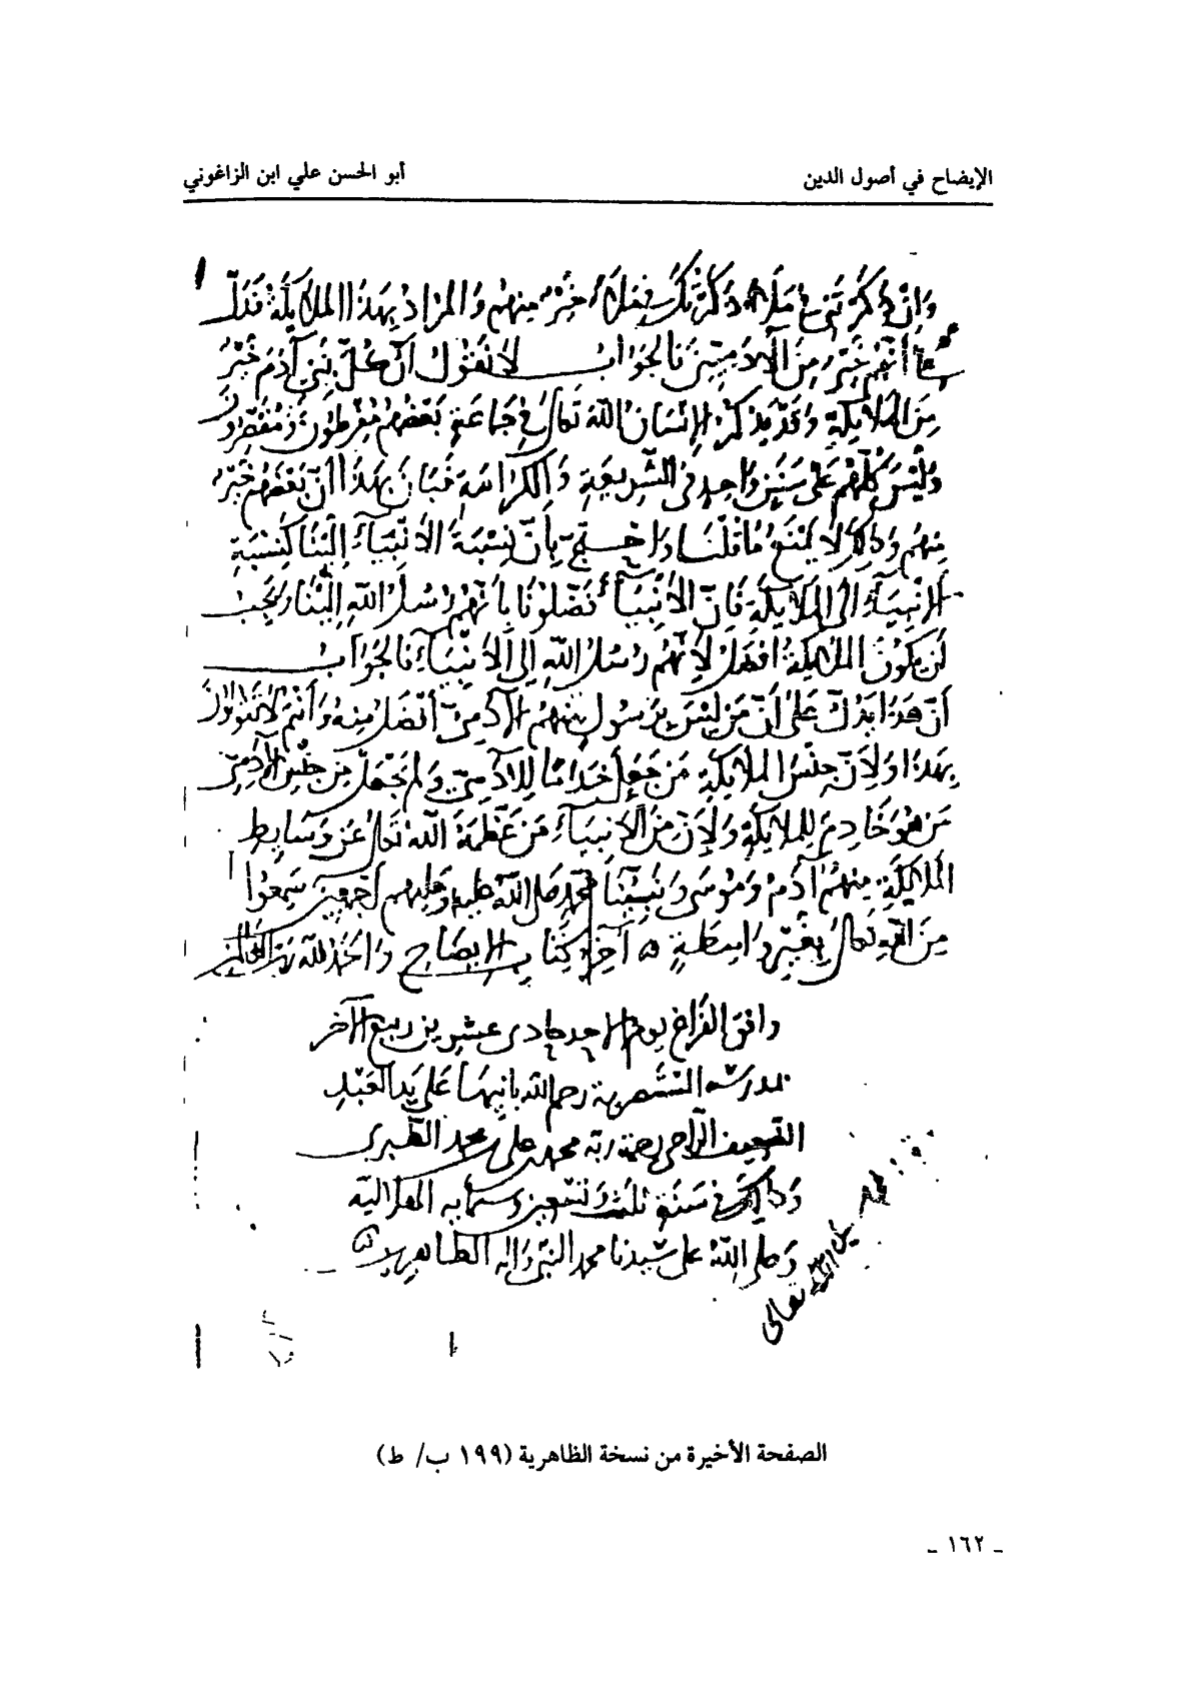 الإيضاح في أصول الدين
أبو الحسن علي ابن الزاغوني
وَإنْ ذكَرَتَني في مَلَأ ذكَرْتُكَ في مَلَأ خَيْرٌ مِنهُم وَالمرَادُ بِهَذَا الملايكَةَ فَدَلّ
أنّهُم خَيْرٌ مِنَ الآدَمِيّينَ فَالجَوَابُ لا نَقُولُ أنّ كُلّ بَني آدَمَ خَيْرٌ
مِنَ الملايكَةِ وَقَدْ يَذكُرُ الإنسَانُ اللهَ تَعَالَى في جَمَاعَةٍ بَعْضُهُم مُفَرِّطُونَ وَمُقَصِّرُونَ
وَلَيْسَ كُلّهُم عَلى سَنَنٍ وَاحِدٍ في الشّريعَةِ وَالكَرَامَةِ فَبَانَ بِهَذَا أنّ بَعْضَهُم خَيْرٌ
مِنهُم وَذلِكَ لا يَمْنَعُ مَا قلْنَا وَاحتَجّ بِأنّ نِسْبَةَ الأنبِيَآءِ إلَيْنَا كَنِسْبَةِ
الأنبِيَآءِ إلى الملَايكَةِ فَإنّ الأنبِيَآءَ فَضَلُونَا بِأنّهُم رُسُلُ اللهِ إلَيْنَا وَيَجبُ
أن يَكُونَ الملايكَةُ أفضَلُ لأنّهُم رُسُلُ اللهِ إلى الأنبِيَآءِ فَالجَوَابُ
أنّ هَذَا يَدُلّ عَلى أنّ مَن لَيْسَ بِرَسُولٍ مِنهُم إلى آدَمِيّ أفضَلُ مِنهُ وَأنتم لا تَقُولُونَ
بِهَذَا وَلأنّ جِنْسَ الملايكَةِ مَن جُعِلَ خَدَامًا لِلآدَمِيّ وَلَم يُجْعَلْ مِن جِنْسِ الآدَمِيّينَ
مَن هُوَ خَادِمٌ لِلملايكَةِ وَلأنّ مِنَ الأنبِيَآءِ مَن عَظّمَهُ اللهُ تَعَالَى عَن وَسَايِطِ
الملَايكَةِ مِنهُم آدَمُ وَمُوسَى وَنَبِيّنَا محمد صَلى اللهُ عليه وعليهم أجمعين سَمِعُوا
مِنَ اللهِ تَعَالَى بِغَيْرِ وَاسِطَةٍ آخِرُ كِتَابِ الإيضَاحِ وَالحَمْدُ للهِ رَبّ العَالَمينَ
وافق الفَراغ يوم الاحد حادى عشرين ربيع الآخر
بمدرسَة المستنصرية رحم الله بَانيهَا عَلى يَد العَبْدِ
الضعيف الرّاجي رحمة ربّه محمد بن علي بن محمد الطبري
وَذلِكَ في سَنَةِ ثلث وتسعين وستمايه الهلالية
وَصلى اللهُ عَلى سيدنا محمد النبي وَاله الطاهرين
تعالى
الصفحة الأخيرة من نسخة الظاهرية (١٩٩ ب/ ط)
ـ ١٦٢ ـ